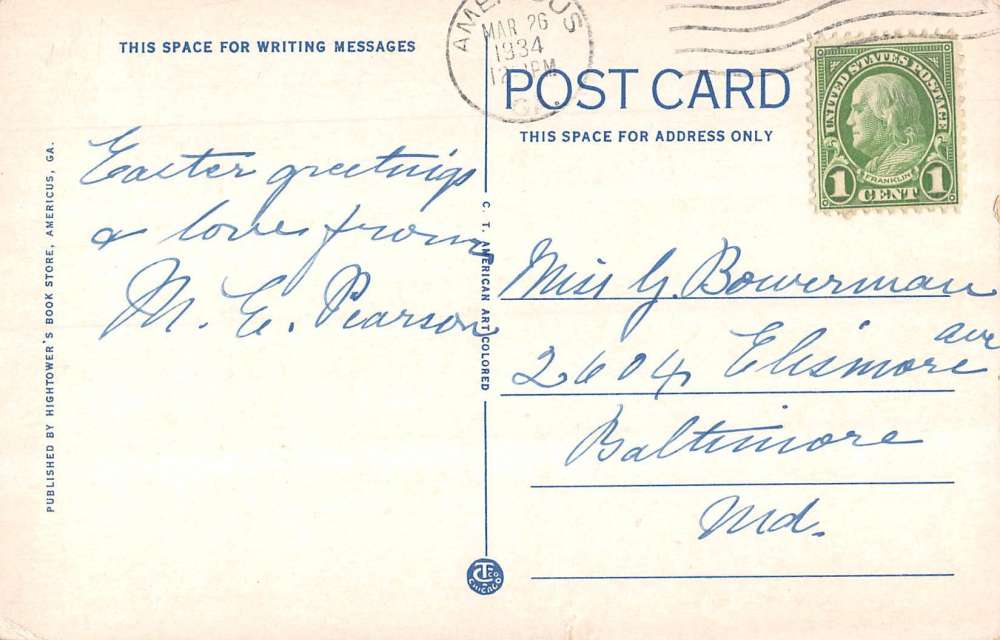 THIS SPACE FOR WRITING MESSAGES
Easter greetings
& love from
M. E. Pearson
PUBLISHED BY HIGHTOWER'S BOOK STORE, AMERICUS, GA.
C. T. AMERICAN ART COLORED
CTCO
CHICAGO
AMERICUS
MAR 26
1934
12 PM
GA.
POST CARD
THIS SPACE FOR ADDRESS ONLY
UNITED STATES POSTAGE
FRANKLIN
1 CENT 1
Miss G. Bowerman
2604 Elismore ave
Baltimore
Md.